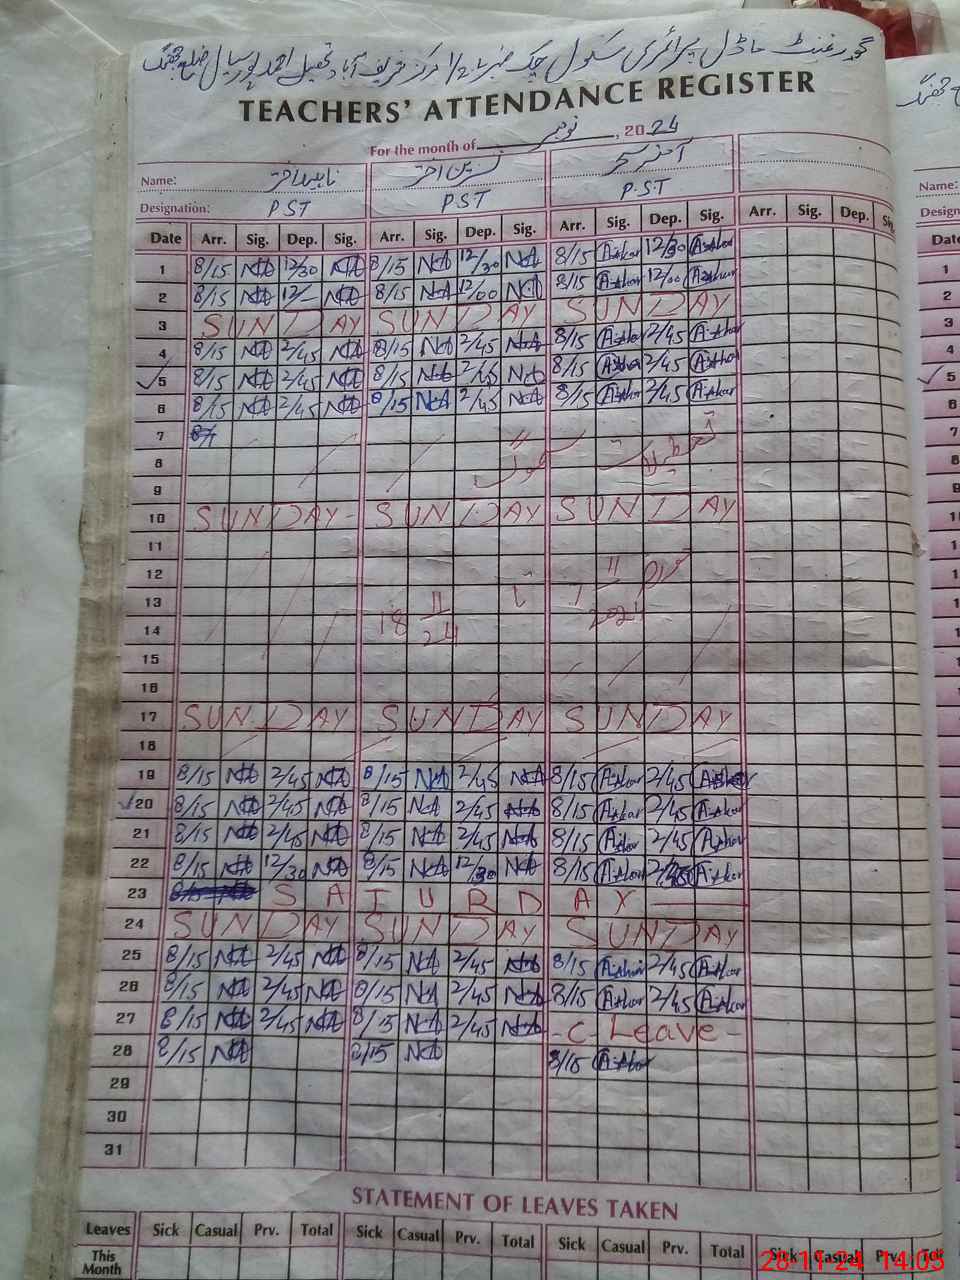 گورنمنٹ ماڈل پرائمری سکول چک نمبر مرکز شریف آباد تحصیل احمد پور سیال ضلع جھنگ
TEACHERS' ATTENDANCE REGISTER
For the month of نومبر, 2024
Name: ناہید اختر نسرین اختر
Designation: PST PST P.S.T
Date Arr. Sig. Dep. Sig. Arr. Sig. Dep. Sig. Arr. Sig. Dep. Sig. Arr. Sig. Dep. Sig.
1 8/15 NA 12/30 NA 8/15 NA 12/30 NA 8/15 Athar 12/30 Athar
2 8/15 NA 12/- NA 8/15 NA 12/00 NA 8/15 Athar 12/00 Athar
3 SUNDAY SUNDAY SUNDAY
4 8/15 NA 2/45 NA 8/15 NA 2/45 NA 8/15 Athar 2/45 Athar
5 8/15 NA 2/45 NA 8/15 NA 2/45 NA 8/15 Athar 2/45 Athar
6 8/15 NA 2/45 NA 8/15 NA 2/45 NA 8/15 Athar 2/45 Athar
7
8 تعطیلات
9
10 SUNDAY- SUNDAY SUNDAY
11
12
13 18 11 24 تا 11 2024
14
15
16
17 SUNDAY SUNDAY SUNDAY
18
19 8/15 NA 2/45 NA 8/15 NA 2/45 NA 8/15 Athar 2/45 Athar
20 8/15 NA 2/45 NA 8/15 NA 2/45 NA 8/15 Athar 2/45 Athar
21 8/15 NA 2/45 NA 8/15 NA 2/45 NA 8/15 Athar 2/45 Athar
22 8/15 NA 12/30 NA 8/15 NA 12/30 NA 8/15 Athar Athar
23 SATURDAY
24 SUNDAY SUNDAY SUNDAY
25 8/15 NA 2/45 NA 8/15 NA 2/45 NA 8/15 Athar 2/45 Athar
26 8/15 NA 2/45 NA 8/15 NA 2/45 NA 8/15 Athar 2/45 Athar
27 8/15 NA 2/45 NA 8/15 NA 2/45 NA -C-Leave-
28 8/15 NA 8/15 NA 8/15 Athar
29
30
31
STATEMENT OF LEAVES TAKEN
Leaves Sick Casual Prv. Total Sick Casual Prv. Total Sick Casual Prv. Total Sick Casual Prv.
This Month
28-11-24 14:03
Name:
1
2
3
4
5
6
7